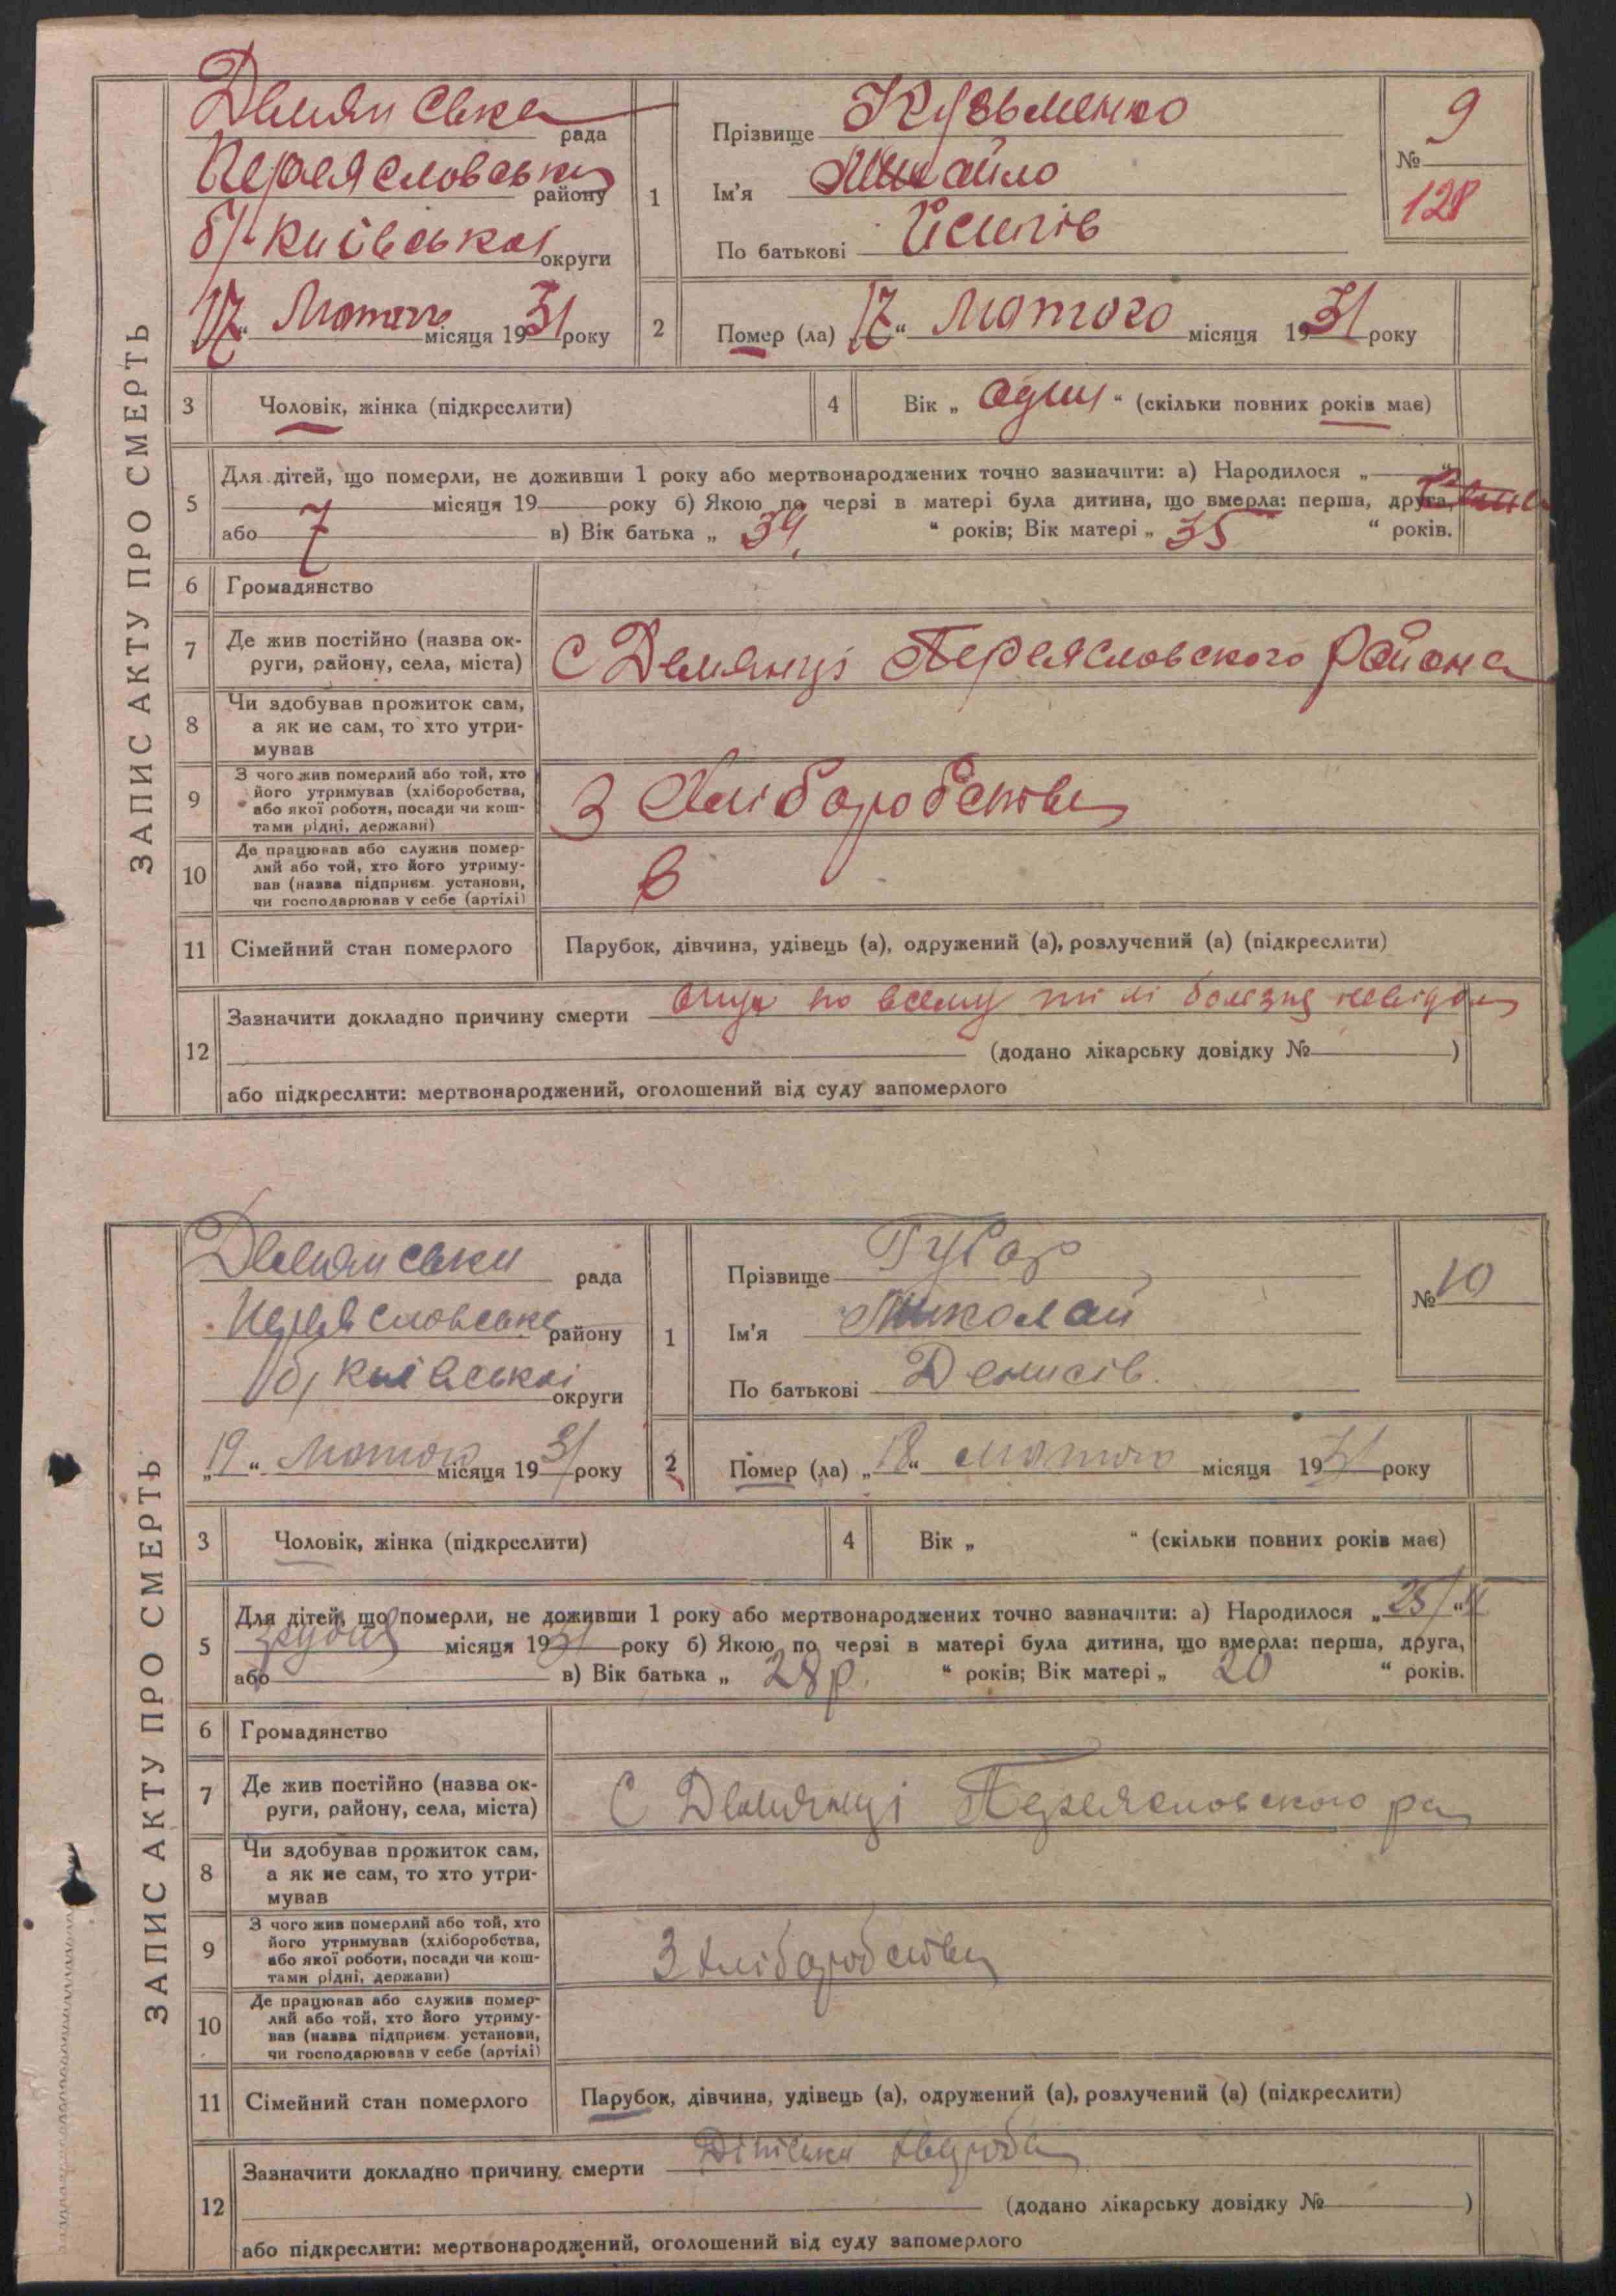 ЗАПИС АКТУ ПРО СМЕРТЬ
Демянська рада
Переясловська району
б/ Київської округи
"17" Лютого місяця 1931 року
1
Прізвище Кузьменко
Ім'я Михайло
По батькові Йсипів
№ 9
128
2
Помер (ла) "17" Лютого місяця 1931 року
3 Чоловік, жінка (підкреслити)
4 Вік „ один “ (скільки повних років має)
5 Для дітей, що померли, не доживши 1 року або мертвонароджених точно зазначити: а) Народилося „
місяця 19 року б) Якою по черзі в матері була дитина, що вмерла: перша, друга,
або 7 в) Вік батька „ 34 “ років; Вік матері „ 35 “ років.
6 Громадянство
7 Де жив постійно (назва ок-
руги, району, села, міста)
С Демянці Переясловского Района
8 Чи здобував прожиток сам,
а як не сам, то хто утри-
мував
9 З чого жив померлий або той, хто
його утримував (хліборобства,
або якої роботи, посади чи кош-
тами рідні, держави)
З Хліборобства
10 Де працював або служив помер-
лий або той, хто його утриму-
вав (назва підприєм. установи,
чи господарював у себе (артілі)
в
11 Сімейний стан померлого
Парубок, дівчина, удівець (а), одружений (а), розлучений (а) (підкреслити)
12 Зазначити докладно причину смерти по всему тілі болезнь
(додано лікарську довідку № )
або підкреслити: мертвонароджений, оголошений від суду запомерлого
ЗАПИС АКТУ ПРО СМЕРТЬ
Демянськи рада
Переясловське району
б/ Київської округи
„19“ Лютого місяця 1931 року
1
Прізвище Губар
Ім'я Николай
По батькові Денисів.
№ 10
2
Помер (ла) „18“ Лютого місяця 1931 року
3 Чоловік, жінка (підкреслити)
4 Вік „ “ (скільки повних років має)
5 Для дітей, що померли, не доживши 1 року або мертвонароджених точно зазначити: а) Народилося „25/“
місяця 1931 року б) Якою по черзі в матері була дитина, що вмерла: перша, друга,
або в) Вік батька „ 28 р. “ років; Вік матері „ 20 “ років.
6 Громадянство
7 Де жив постійно (назва ок-
руги, району, села, міста)
С Демянці Переясловского ра
8 Чи здобував прожиток сам,
а як не сам, то хто утри-
мував
9 З чого жив померлий або той, хто
його утримував (хліборобства,
або якої роботи, посади чи кош-
тами рідні, держави)
З хліборобства
10 Де працював або служив помер-
лий або той, хто його утриму-
вав (назва підприєм. установи,
чи господарював у себе (артілі)
11 Сімейний стан померлого
Парубок, дівчина, удівець (а), одружений (а), розлучений (а) (підкреслити)
12 Зазначити докладно причину смерти Дітська хвороба
(додано лікарську довідку № )
або підкреслити: мертвонароджений, оголошений від суду запомерлого